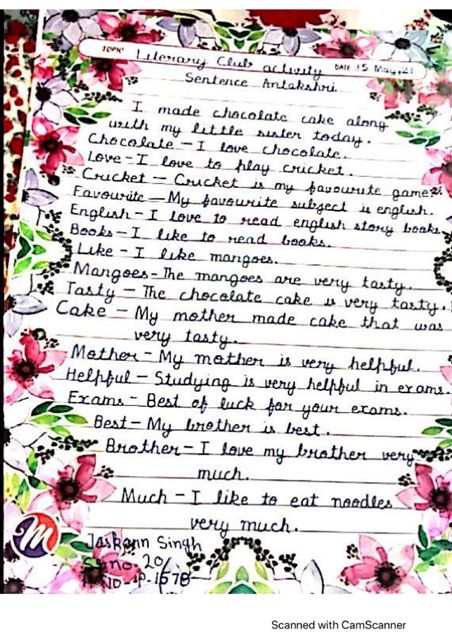 TOPIC Literary Club activity DATE 15 May, 21
Sentence Antakshri.
I made chocolate cake along
with my little sister today.
Chocolate – I love chocolate.
Love – I love to play cricket.
Cricket – Cricket is my favourite game.
Favourite – My favourite subject is english.
English – I love to read english story books
Books – I like to read books.
Like – I like mangoes.
Mangoes – The mangoes are very tasty.
Tasty – The chocolate cake is very tasty.
Cake – My mother made cake that was
very tasty.
Mother – My mother is very helpful.
Helpful – Studying is very helpful in exams.
Exams – Best of luck for your exams.
Best – My brother is best.
Brother – I love my brother very
much.
Much – I like to eat noodles
very much.
M
Singh
no. 20
1578
Scanned with CamScanner